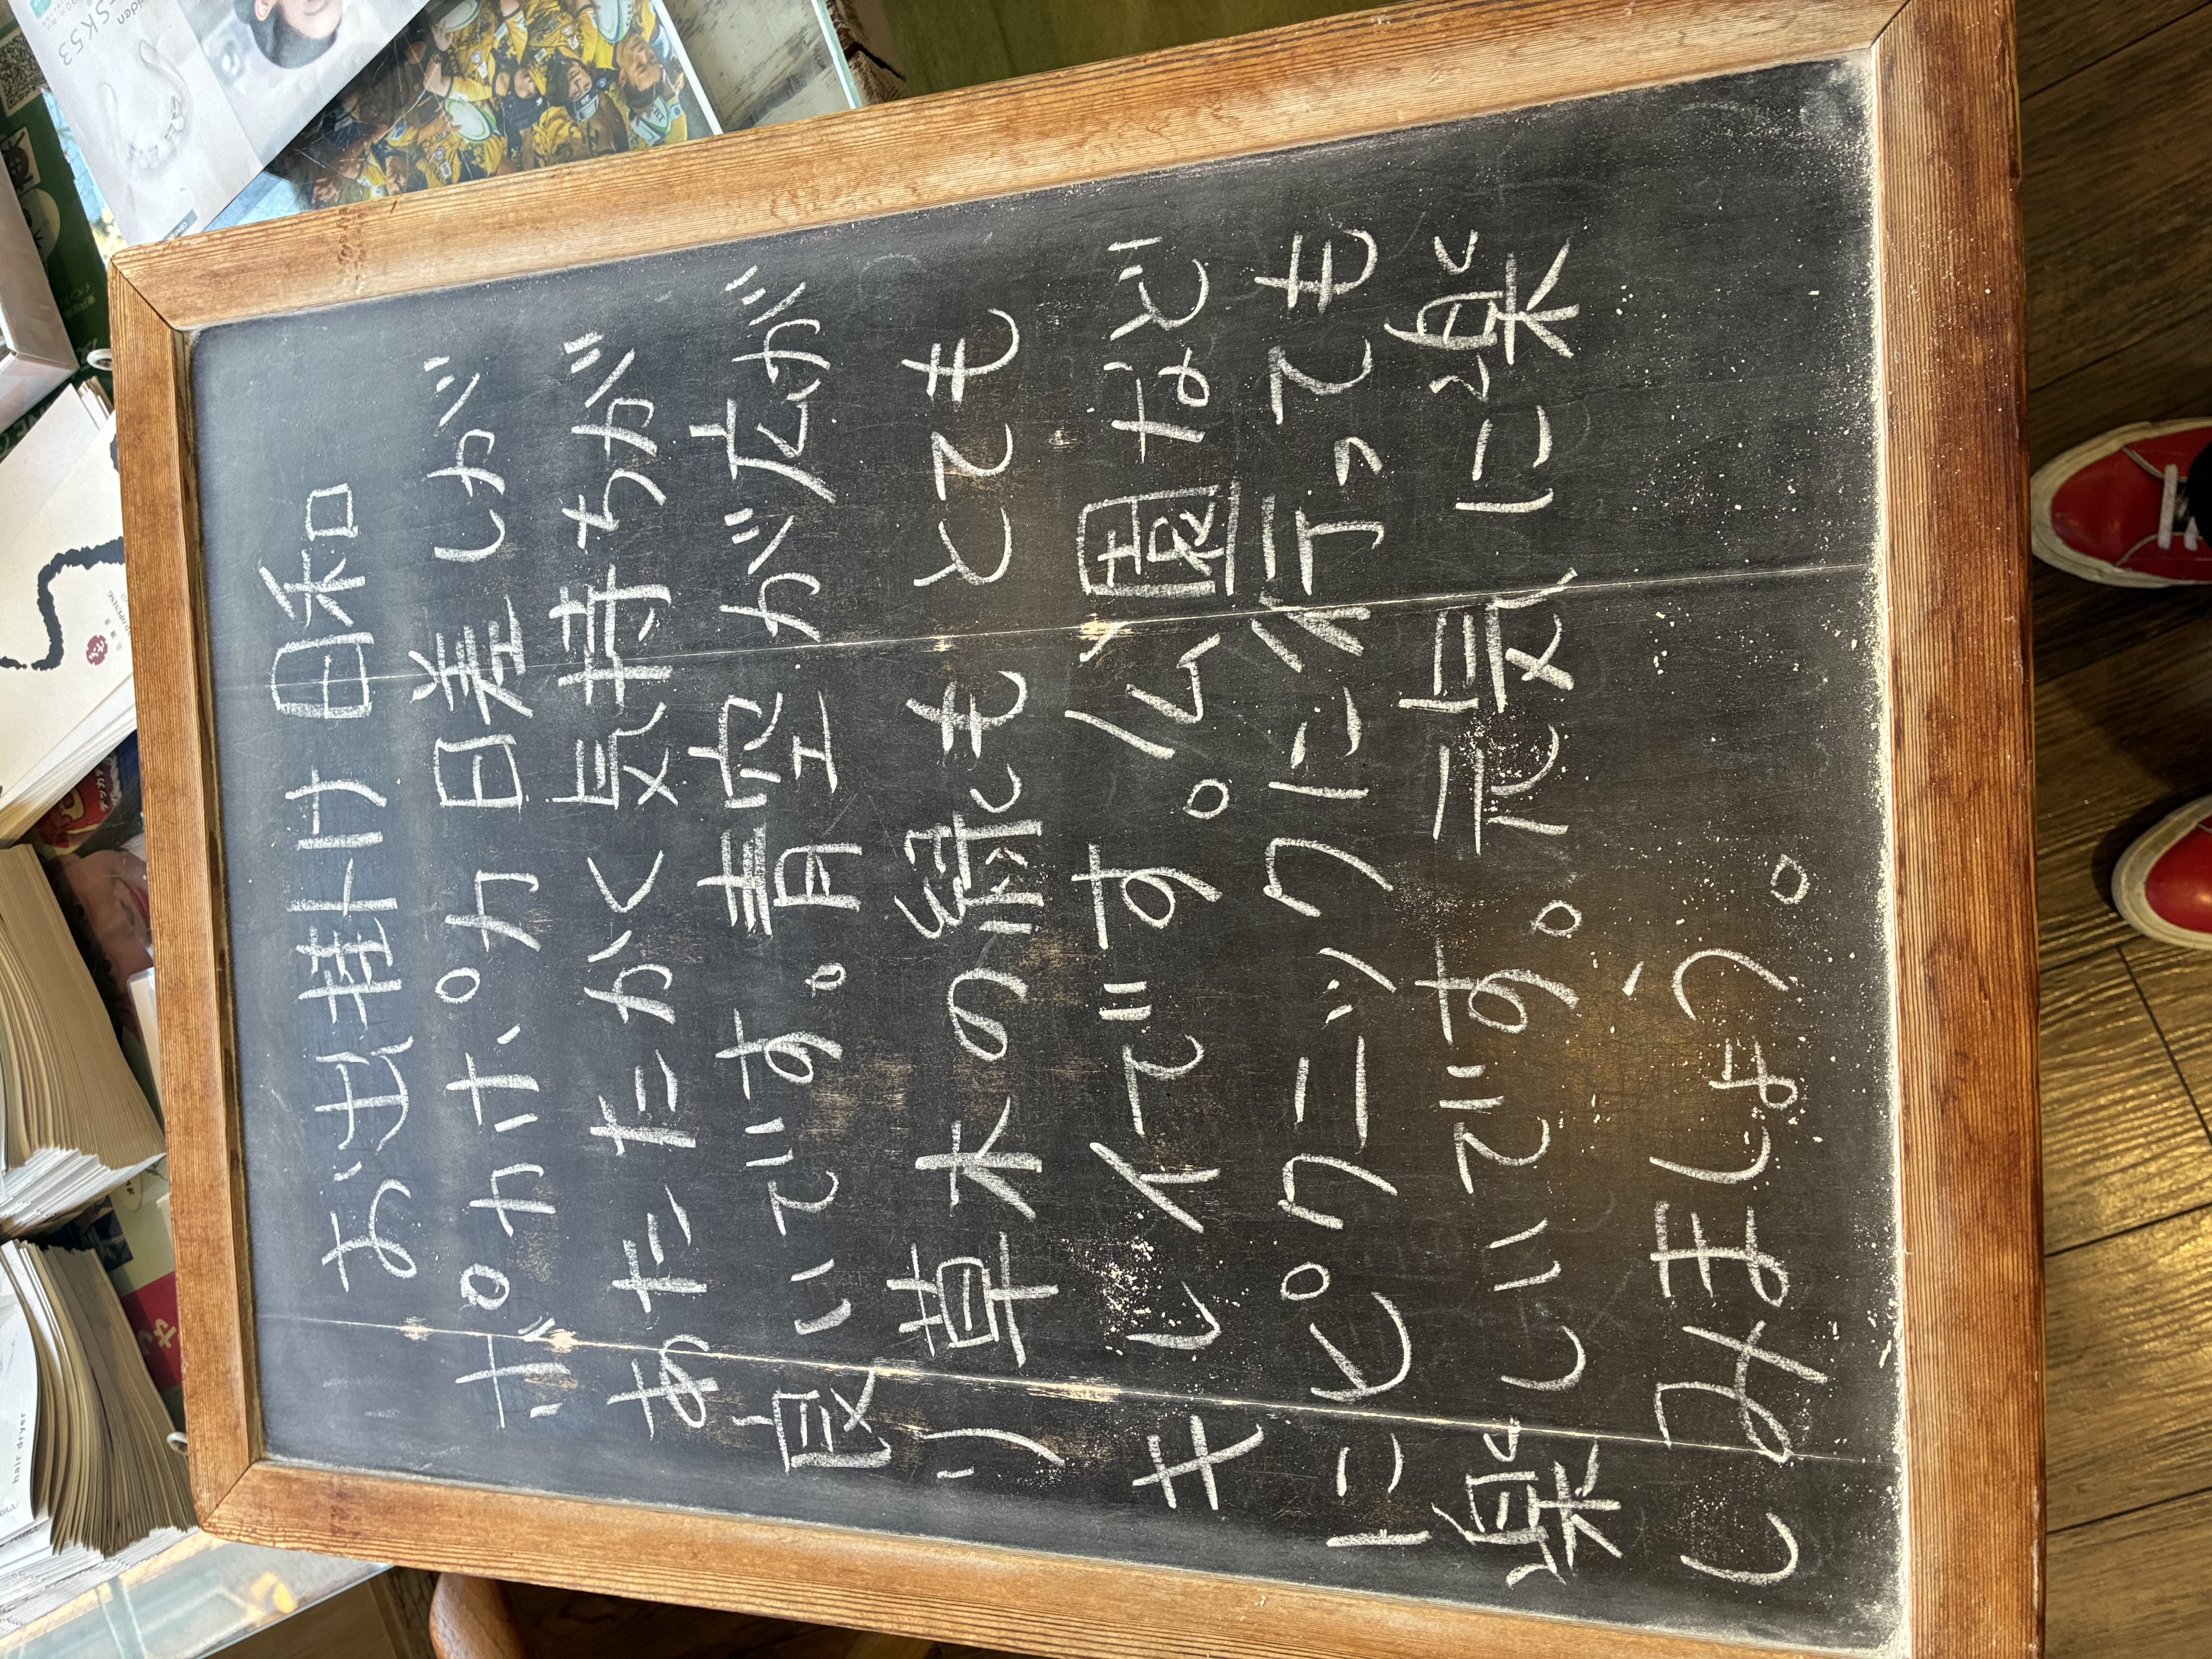 お出掛け日和
ポカポカ日差しが
あたたかく気持ちが
良いです。青空が広が
り草木の緑もとても
キレイです。公園など
にピクニックに行っても
楽しいです。元気に楽
しみましょう。
hair dryer